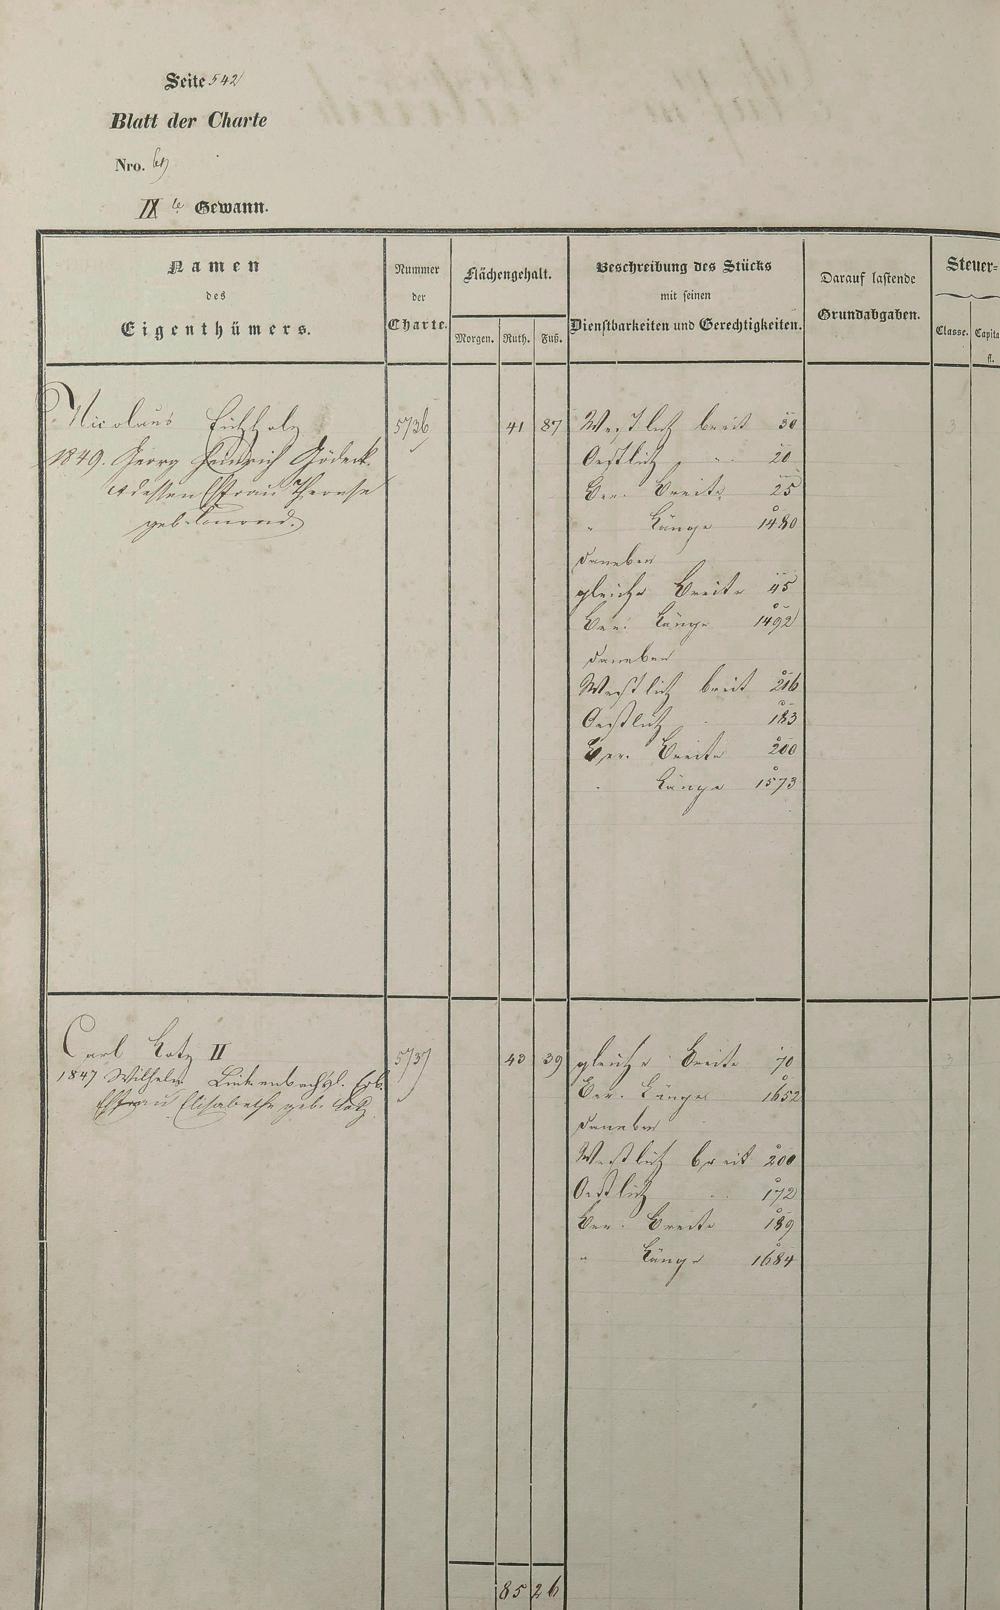 Seite 542
Blatt der Charte
Nro. 69
IX te Gewann.
Namen
des
Eigenthümers.
Nummer
der
Charte.
Flächengehalt.
Morgen. Ruth. Fuß.
Beschreibung des Stücks
mit seinen
Dienstbarkeiten und Gerechtigkeiten.
Darauf lastende
Grundabgaben.
Steuer-
Classe. Capita
fl.
Nicolaus Eichholz 5736 41 87 Westlich breit 30 3
1849. Georg Heinrich Gödeck Oestlich " 20
dessen Ehefrau Therese Ber. Breite 25
geb. " Länge 1480
daneben
gleiche Breite 45
Ber. Länge 1492
daneben
Westlich breit 216
Oestlich " 183
Ber. Breite 200
" Länge 1573
Carl Lotz II 5737 43 39 gleiche Breite 70 3
1847 Wilhelm Linkenbach Ber. Länge 1652
Ehefrau Elisabethe geb. Lotz daneben
Westlich breit 200
Oestlich " 172
Ber. Breite 189
" Länge 1684
85 26